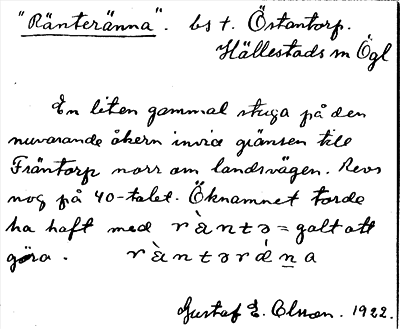 "Ränteränna". bs t. Östantorp.
Hällestads sn Ögl
En liten gammal stuga på den
nuvarande åkern invid gränsen till
Fräntorp norr om landsvägen. Revs
nog på 40-talet. Öknamnet torde
ha haft med rὰntə = galt att
göra. rὰntəráṉa
Gustaf E. Olsson. 1922.